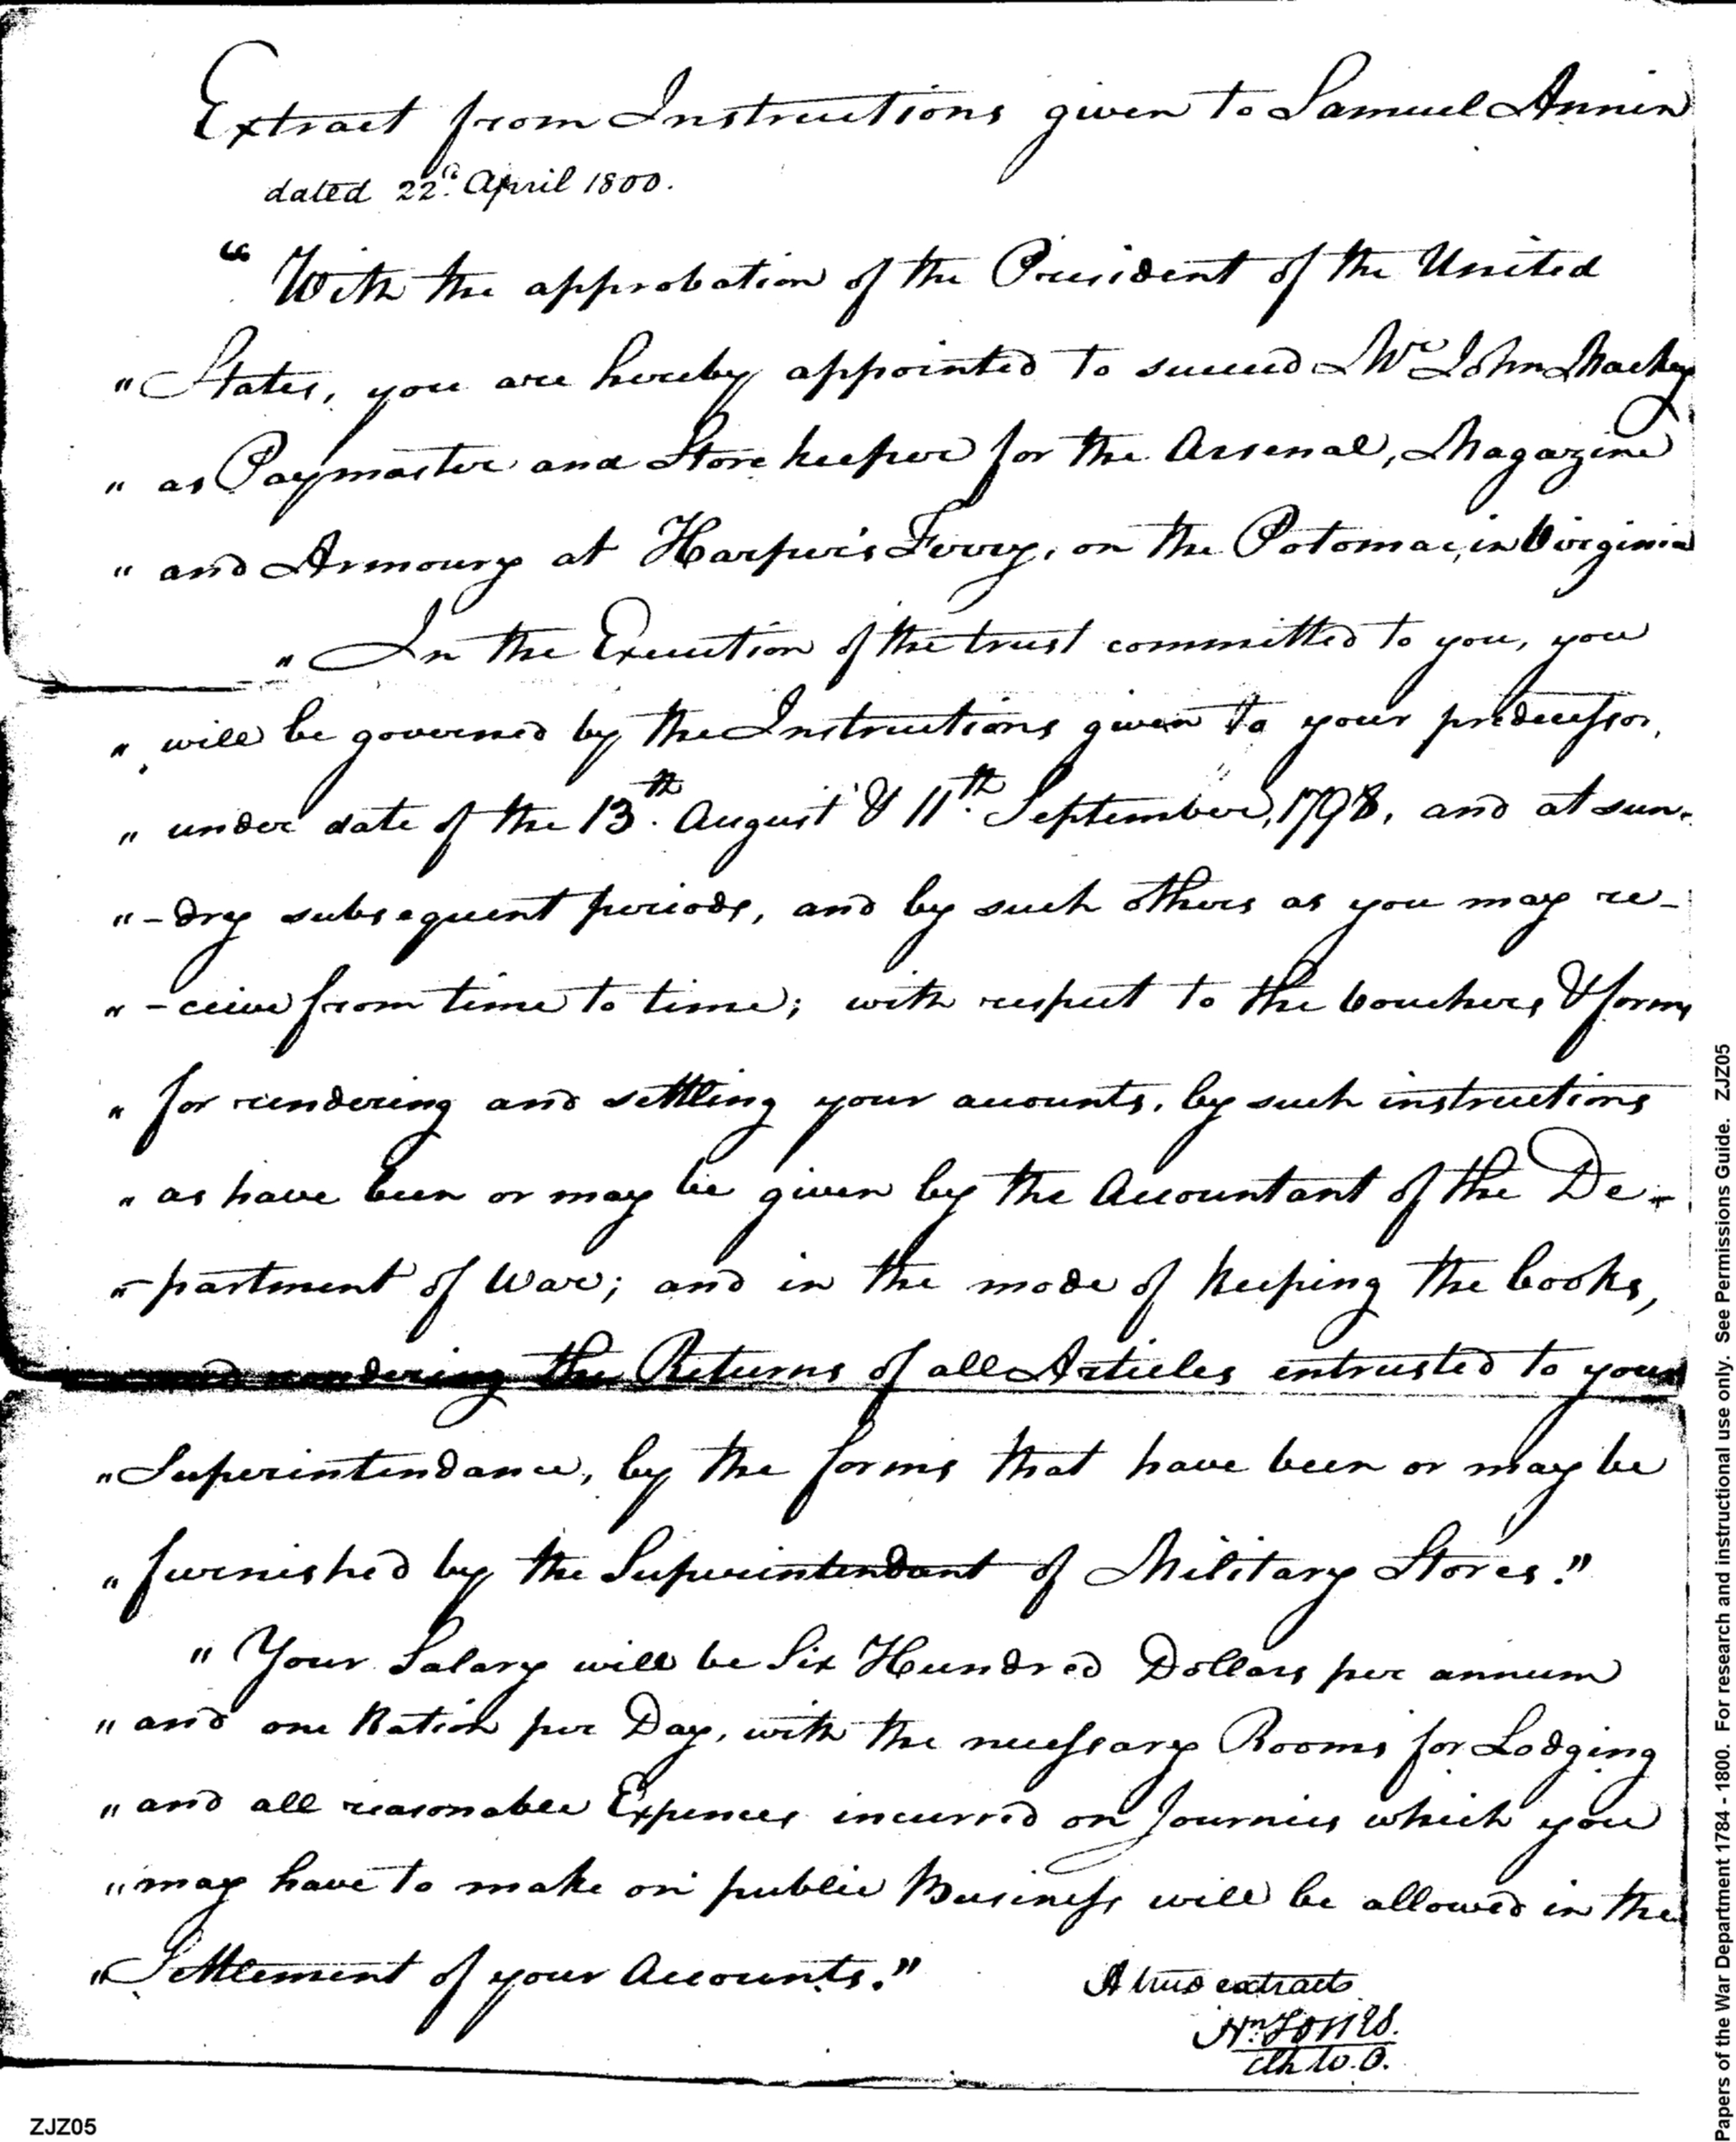 Extract from Instructions given to Samuel Annin
dated 22d. April 1800.
“ With the approbation of the President of the United
" States, you are hereby appointed to succeed Mr John Mackey
" as Paymaster and Store keeper for the Arsenal, Magazine
" and Armoury at Harper's Ferry, on the Potomac, in Virginia
" In the Execution of the trust committed to you, you
" will be governed by the Instructions given to your predecessor,
" under date of the 13th. August & 11th. September, 1798, and at sun-
" -dry subsequent periods, and by such others as you may re-
" -ceive from time to time; with respect to the vouchers & forms
" for rendering and settling your accounts, by such instructions
" as have been or may be given by the Accountant of the De-
" -partment of War; and in the mode of keeping the books,
and rendering the Returns of all Articles entrusted to your
" Superintendance, by the forms that have been or may be
" furnished by the Superintendant of Military Stores."
" Your Salary will be Six Hundred Dollars per annum
" and one Ration per Day, with the necessary Rooms for Lodging
" and all reasonable Expences incurred on Journies which you
" may have to make on public Business will be allowed in the
" Settlement of your Accounts."
A true extract
Clk W.O.
ZJZ05
Papers of the War Department 1784 - 1800. For research and instructional use only. See Permissions Guide. ZJZ05